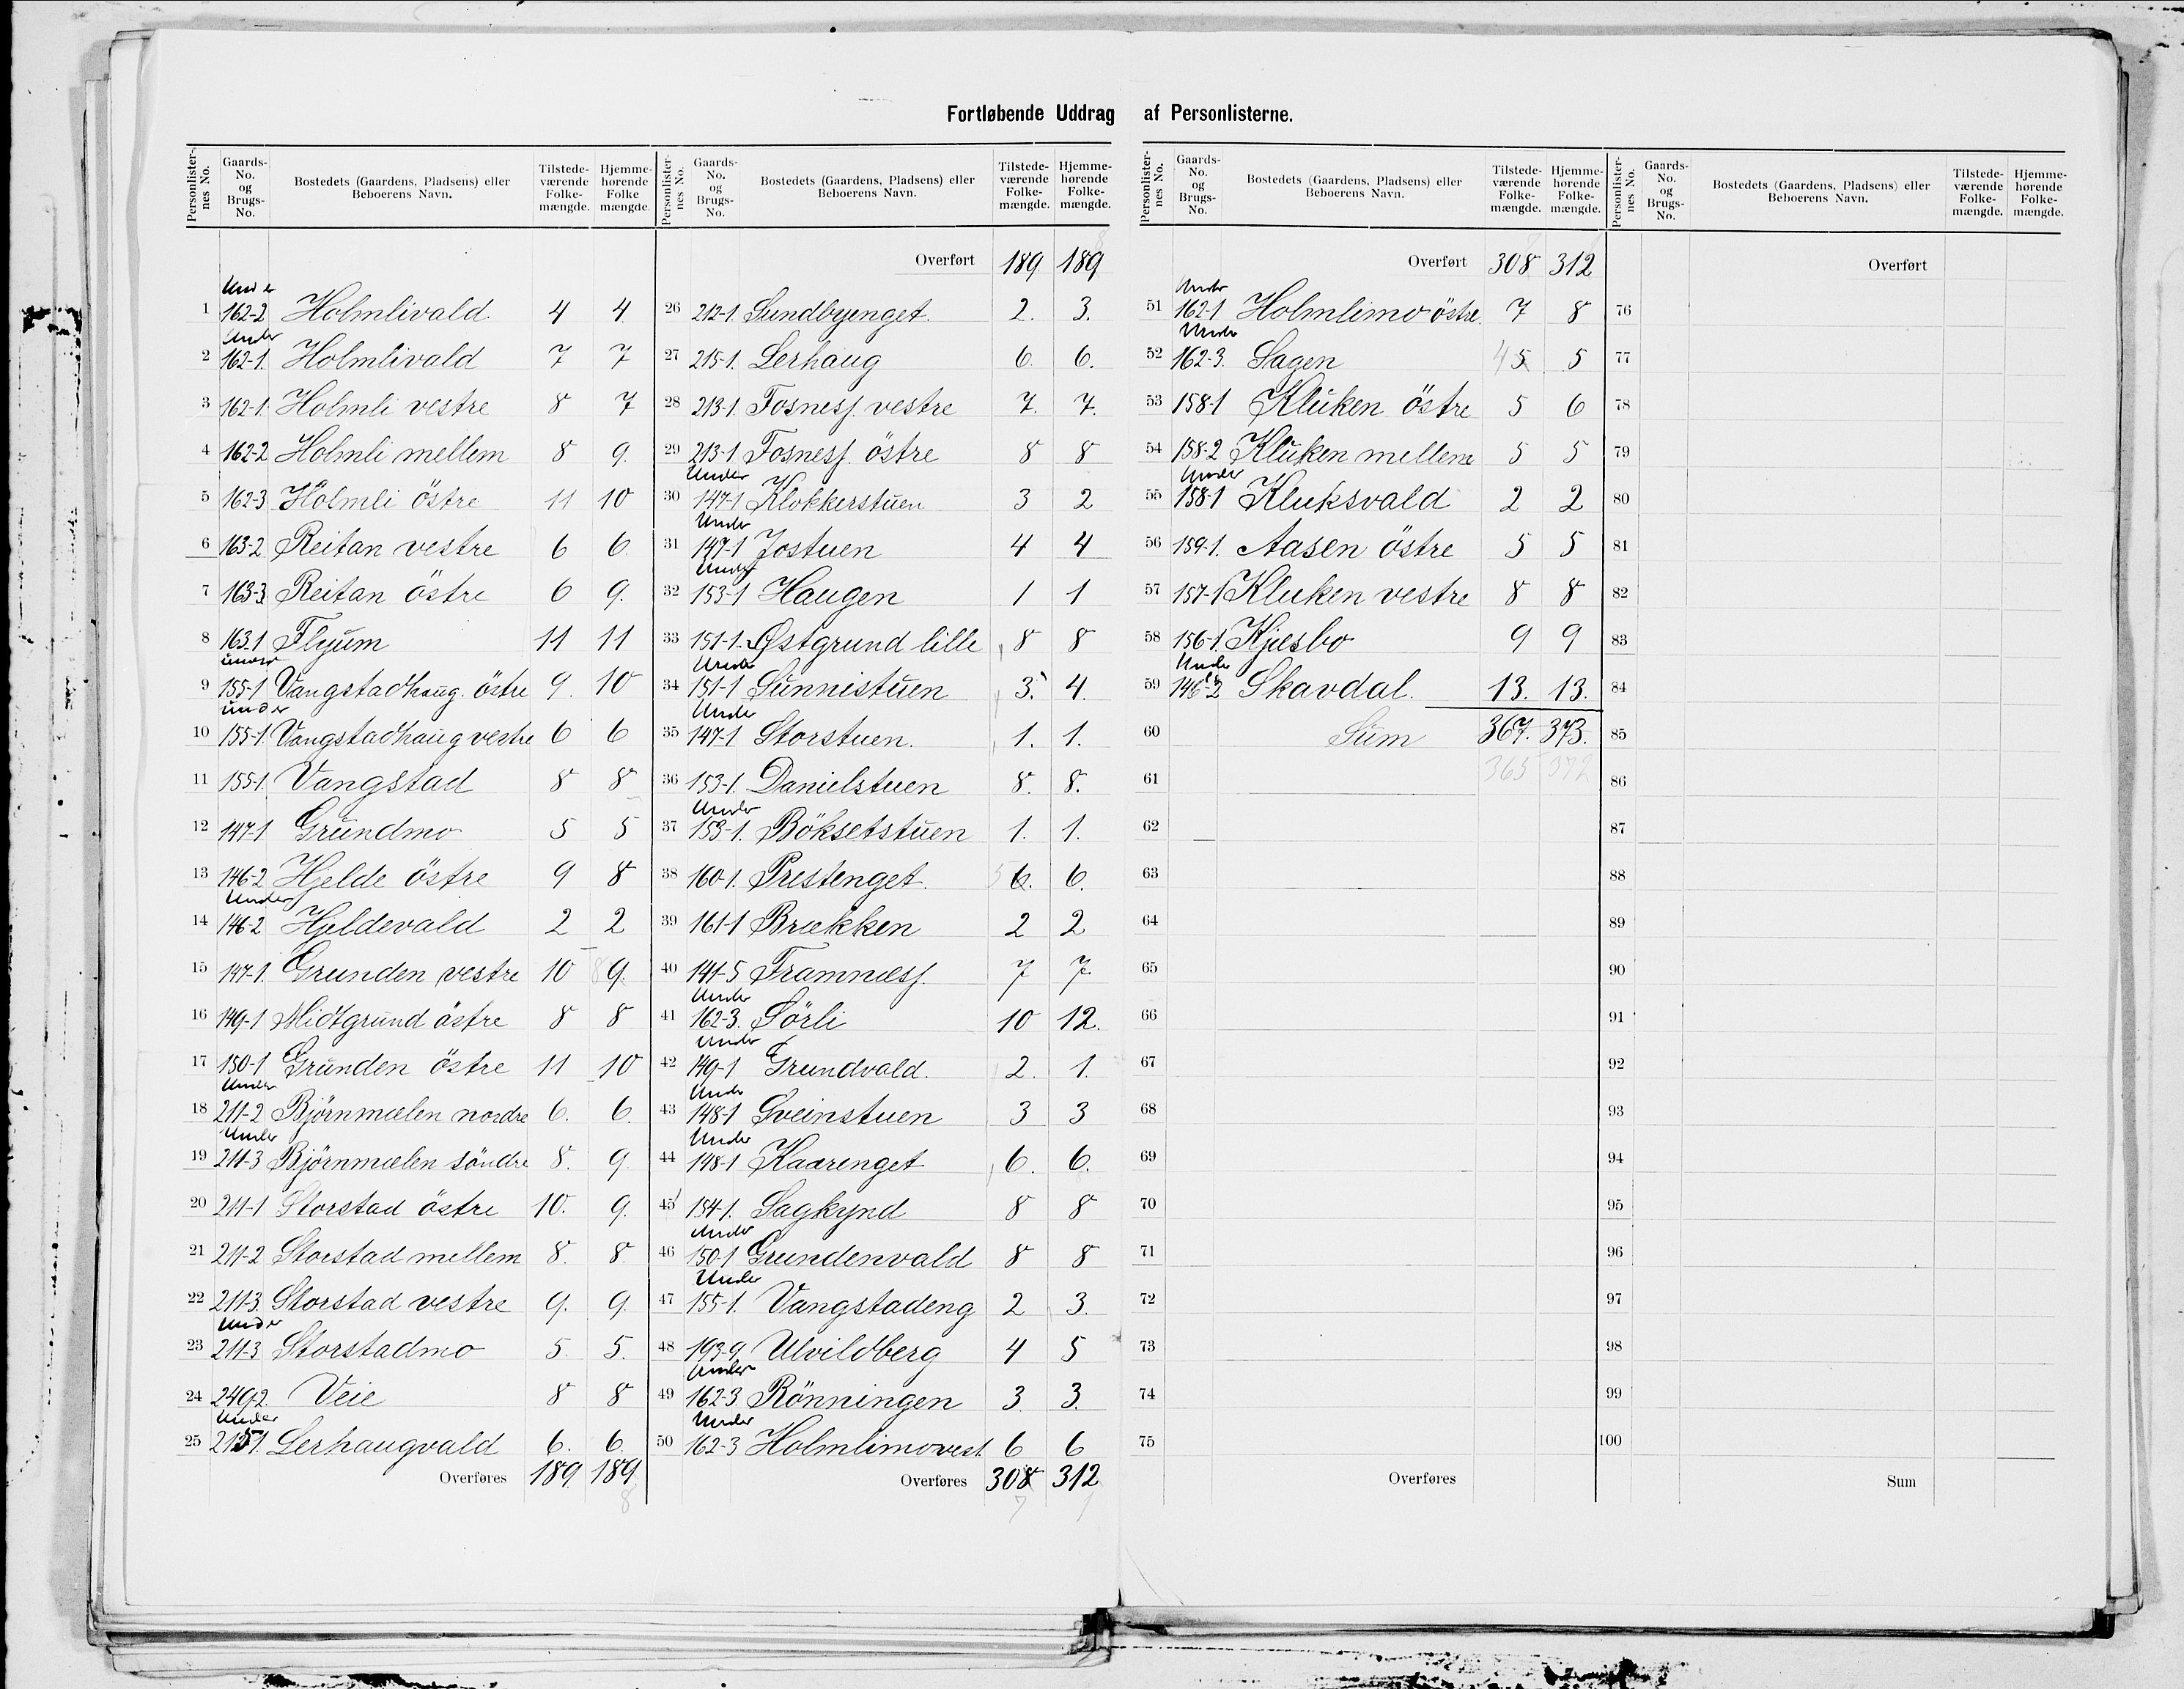 Fortløbende Uddrag af Personlisterne.
Personlisternes No. Gaards-No. og Brugs-No. Bostedets (Gaardens, Pladsens) eller Beboerens Navn. Tilstedeværende Folkemængde. Hjemmehørende Folkemængde.
Under
1 162-2 Holmlivald 4 4
Under
2 162-1. Holmlivald 7 7
3 162-1. Holmli vestre 8 7
4 162-2 Holmli mellem 8 9.
5 162-3 Holmli östre 11 10
6 163-2 Reitan vestre 6 6
7 163-3 Reitan östre 6 9.
8 163-1 Flyum 11 11
under
9 155-1 Vangstadhaug. östre 9. 10
under
10 155-1. Vangstadhaug vestre 6 6
11 155-1. Vangstad 8 8
12 147-1 Grundmo 5 5
13 146-2 Hjelde östre 9 8
Under
14 146-2 Hjeldevald 2 2
15 147-1. Grunden vestre 10 9.
16 149-1 Midtgrund östre 8 8
17 150-1 Grunden östre 11 10
Under
18 211-2 Bjørnmælen nordre 6. 6.
Under
19 211-3 Bjørnmælen söndre 8. 9
20 211-1 Storstad östre 10. 9.
21 211-2 Storstad mellem 8. 8.
22 211-3. Storstad vestre 9. 9
Under
23 211-3 Storstadmo 5. 5.
24 249-2. Veie 8 8
Under
25 215-1. Lerhaugvald 6. 6.
Overføres 189. 189
8
Personlisternes No. Gaards-No. og Brugs-No. Bostedets (Gaardens, Pladsens) eller Beboerens Navn. Tilstedeværende Folkemængde. Hjemmehørende Folkemængde.
8
Overført 189 189
26 212-1. Sundbyenget. 2. 3.
27 215-1. Lerhaug 6. 6.
28 213-1. Fosnesf. vestre 7. 7.
29 213-1 Fosnesf. östre 8 8
Under
30 147-1 Klokkerstuen 3 2
Under
31 147-1 Jostuen 4 4
Under
32 153-1 Haugen 1 1
33 151-1. Østgrund lille 8 8
Under
34 151-1 Sunnistuen 3. 4.
Under
35 147-1 Storstuen. 1. 1.
36 153-1. Danielstuen 8. 8.
Under
37 153-1. Böksetstuen 1. 1.
38 160-1. Prestenget. 5 6. 6.
39 161-1 Brækken 2 2
40 141-5 Framnæsf. 7 7
Under
41 162-3. Sörli 10 12.
Under
42 149-1 Grundvald. 2. 1.
Under
43 148-1 Sveinstuen 3 3
Under
44 148-1 Kaarenget 6. 6.
45 154-1. Sagkynd 8 8
Under
46 150-1 Grundenvald 8 8
Under
47 155-1. Vangstadeng 2 3.
48 193-9. Ulvildberg 4 5
Under
49 162-3 Rönningen 3 3.
Under
50 162-3 Holmlimovest. 6 6
Overføres 308 312
7 1
Personlisternes No. Gaards-No. og Brugs-No. Bostedets (Gaardens, Pladsens) eller Beboerens Navn. Tilstedeværende Folkemængde. Hjemmehørende Folkemængde.
Overført 308 312
Under
51 162-1 Holmlimo östre. 7 8
Under
52 162-3. Sagen 4 5 5
53 158-1 Kluken östre 5 6
54 158-2 Kluken mellem 5 5
Under
55 158-1 Kluksvald 2 2
56 159-1. Aasen östre 5 5
57 157-1 Kluken vestre 8 8
58 156-1. Kjæsbo 9 9
Under
59 146-2 Skavdal. 13. 13.
60 Sum 367. 373.
61 365 372
62
63
64
65
66
67
68
69
70
71
72
73
74
75
Overføres
Personlisternes No. Gaards-No. og Brugs-No. Bostedets (Gaardens, Pladsens) eller Beboerens Navn. Tilstedeværende Folkemængde. Hjemmehørende Folkemængde.
Overført
76
77
78
79
80
81
82
83
84
85
86
87
88
89
90
91
92
93
94
95
96
97
98
99
100
Sum